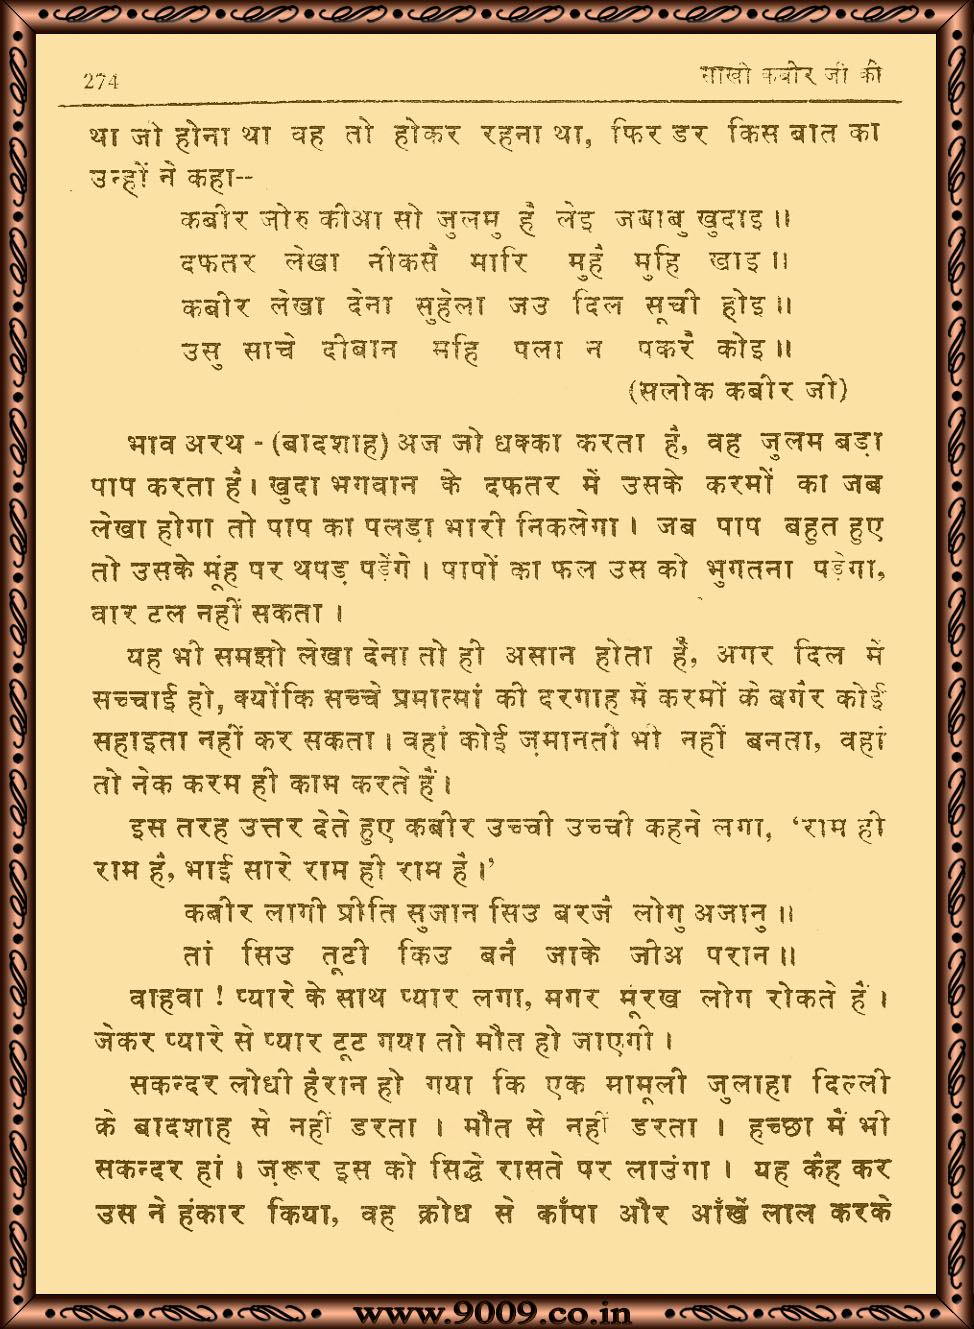 274
साखी कबीर जी की
था जो होना था वह तो होकर रहना था, फिर डर किस बात का
उन्हों ने कहा--
कबीर जोरु कीआ सो जुलमु है लेइ जबाबु खुदाइ ॥
दफतर लेखा नीकसै मारि मुहै मुहि खाइ ॥
कबीर लेखा देना सुहेला जउ दिल सूची होइ ॥
उसु साचे दीबान महि पला न पकरै कोइ ॥
(सलोक कबीर जी)
भाव अरथ - (बादशाह) अज जो धक्का करता है, वह जुलम बड़ा
पाप करता है। खुदा भगवान के दफतर में उसके करमों का जब
लेखा होगा तो पाप का पलड़ा भारी निकलेगा। जब पाप बहुत हुए
तो उसके मूंह पर थपड़ पड़ेंगे। पापों का फल उस को भुगतना पड़ेगा,
वार टल नहीं सकता।
यह भी समझो लेखा देना तो ही असान होता है, अगर दिल में
सच्चाई हो, क्योंकि सच्चे प्रमात्मां की दरगाह में करमों के बगैर कोई
सहाइता नहीं कर सकता। वहां कोई ज़मानती भी नहीं बनता, वहां
तो नेक करम ही काम करते हैं।
इस तरह उत्तर देते हुए कबीर उच्ची उच्ची कहने लगा, ‘राम ही
राम है, भाई सारे राम ही राम है।’
कबीर लागी प्रीति सुजान सिउ बरजै लोगु अजानु ॥
तां सिउ तूटी किउ बनै जाके जीअ परान ॥
वाहवा ! प्यारे के साथ प्यार लगा, मगर मूरख लोग रोकते हैं।
जेकर प्यारे से प्यार टूट गया तो मौत हो जाएगी।
सकन्दर लोधी हैरान हो गया कि एक मामूली जुलाहा दिल्ली
के बादशाह से नहीं डरता। मौत से नहीं डरता। हच्छा मैं भी
सकन्दर हां। ज़रूर इस को सिद्धे रासते पर लाउंगा। यह कैह कर
उस ने हंकार किया, वह क्रोध से काँपा और आँखें लाल करके
www.9009.co.in